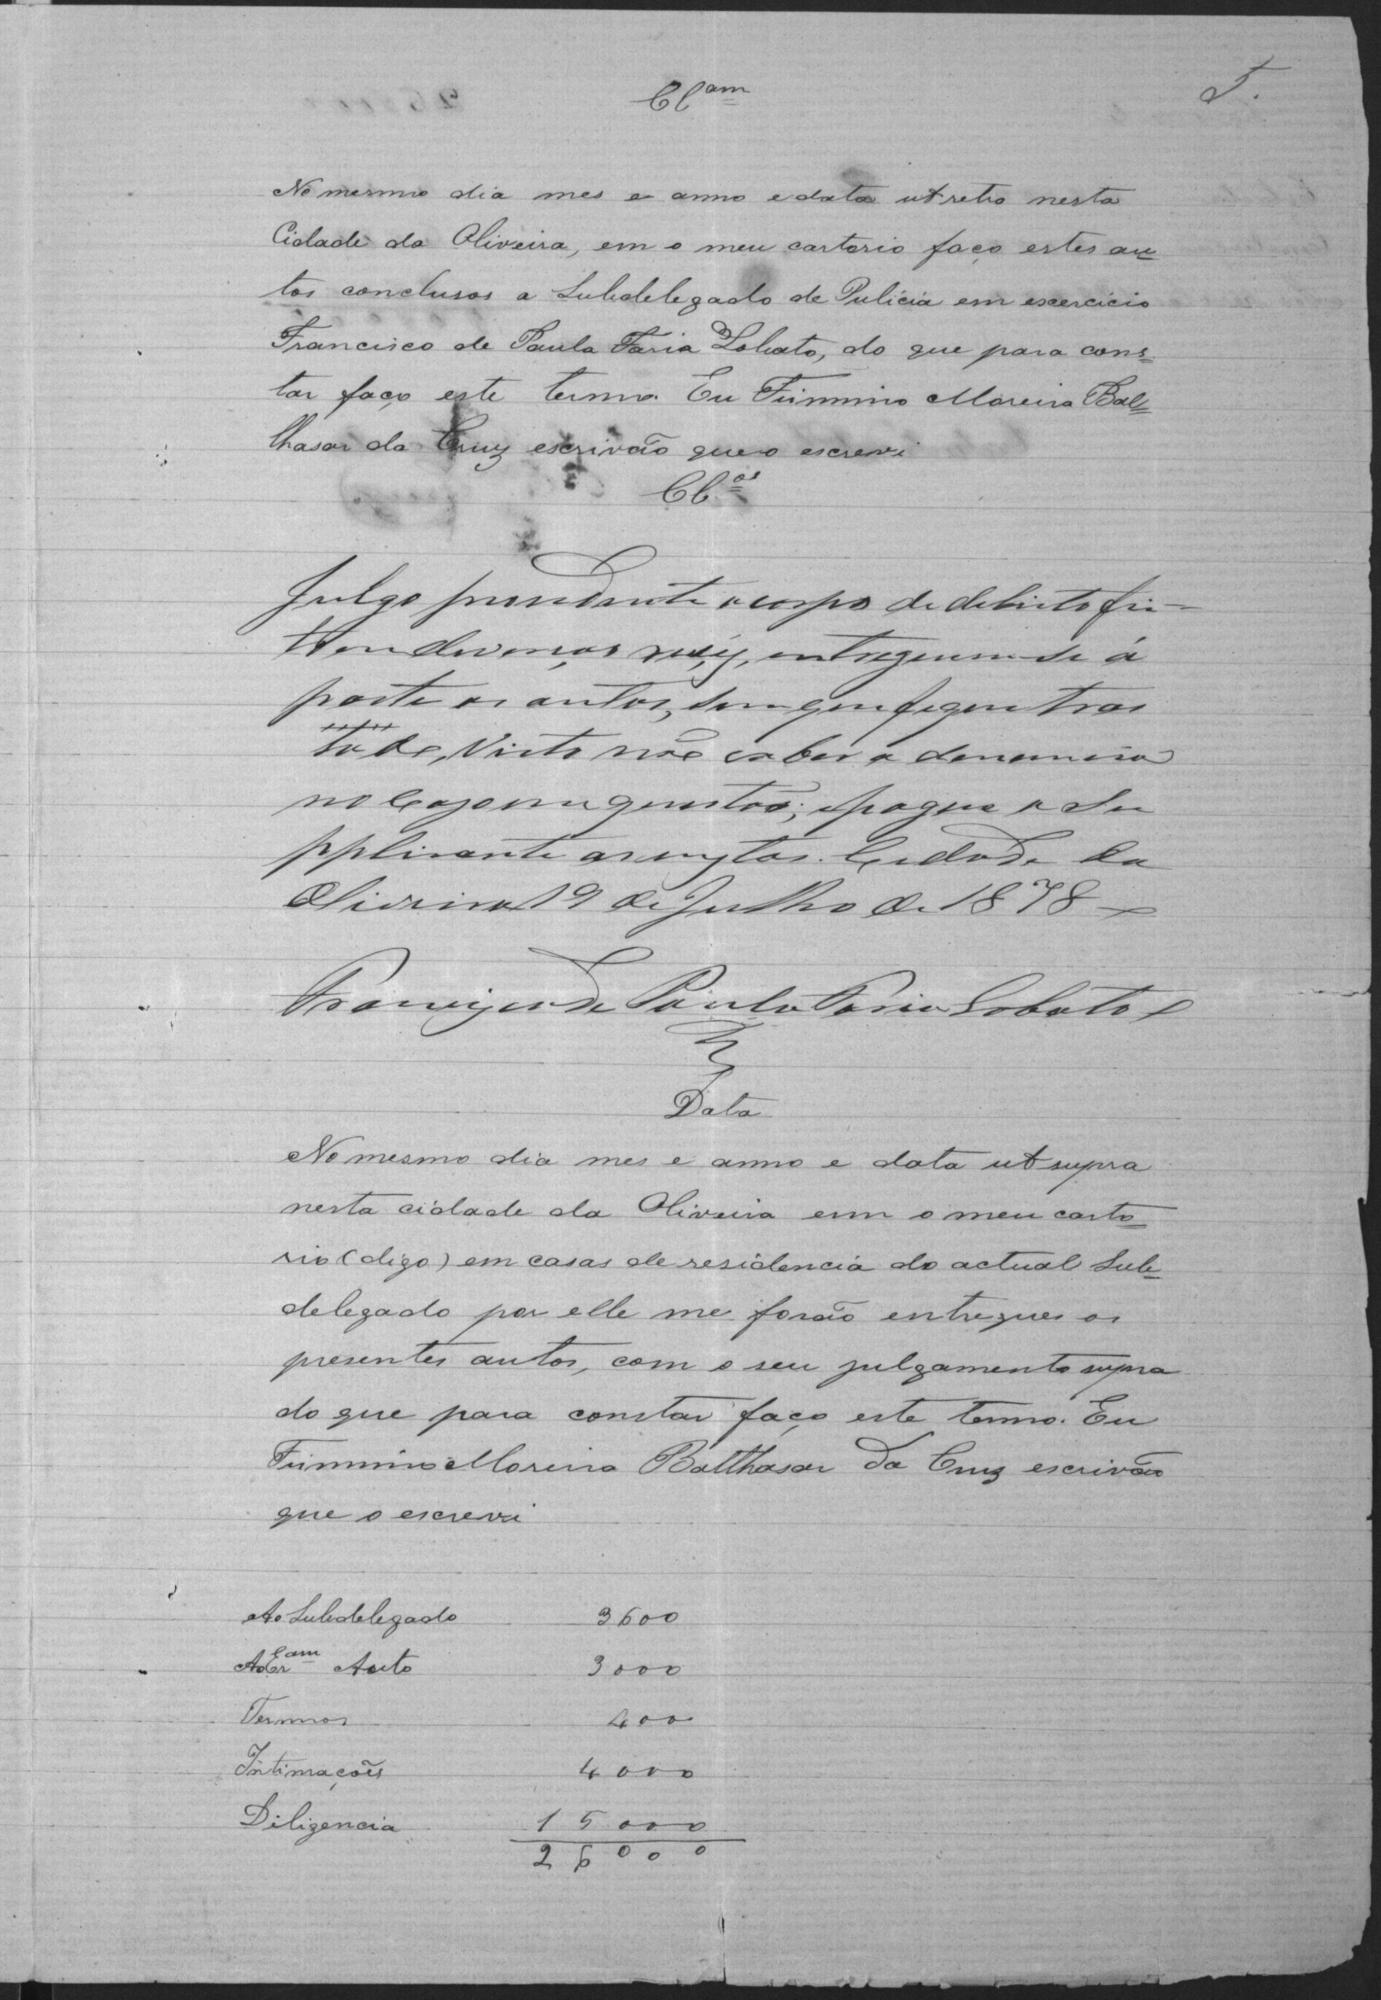 5.
Cl^am
No mesmo dia mes e anno e data ut retro nesta
Cidade da Oliveira, em o meu cartorio faço estes au=
tos conclusos a Subdelegado de Pulicia em excercicio
Francisco de Paula Faria Lobato, do que para cons=
tar faço este termo. Eu Firmino Moreira Bal=
thasar da Cruz escrivão que o escrevi
Cl^os
Julgo presedente o corpo de delicto fei-
to entreguem-se á
parte os autos, sem que fique tras
lado, visto não caber a denuncia
no Cazo em questão; e pague o Su
pplicante as custas. Cidade da
Oliveira 19 de Julho de 1878
Francisco de Paula Faria Lobato
Data
No mesmo dia mes e anno e data ut supra
nesta cidade da Oliveira em o meu carto=
rio (digo) em casas de residencia do actual Sub=
delegado por elle me forão entregues os
presentes autos, com o seu julgamento supra
do que para constar faço este termo. Eu
Firmino Moreira Balthasar da Cruz escrivão
que o escrevi
Ao Subdelegado 3600
Auto 3000
Termos 400
Intimações 4000
Diligencia 15000
26000